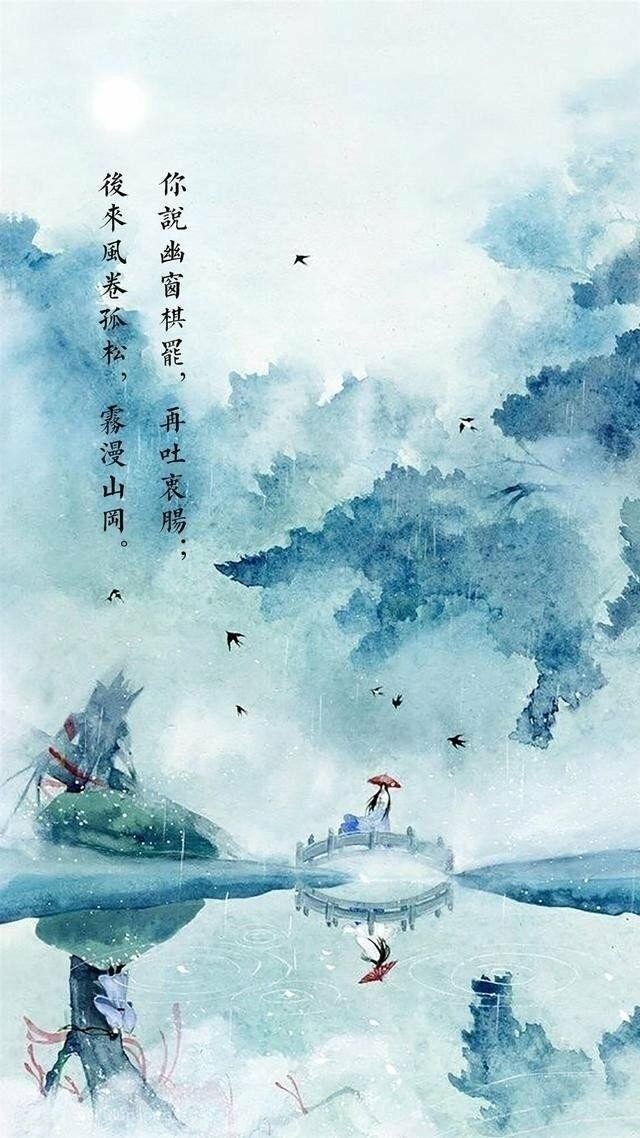 你說幽窗棋罷，再吐衷腸；
後來風卷孤松，霧漫山岡。